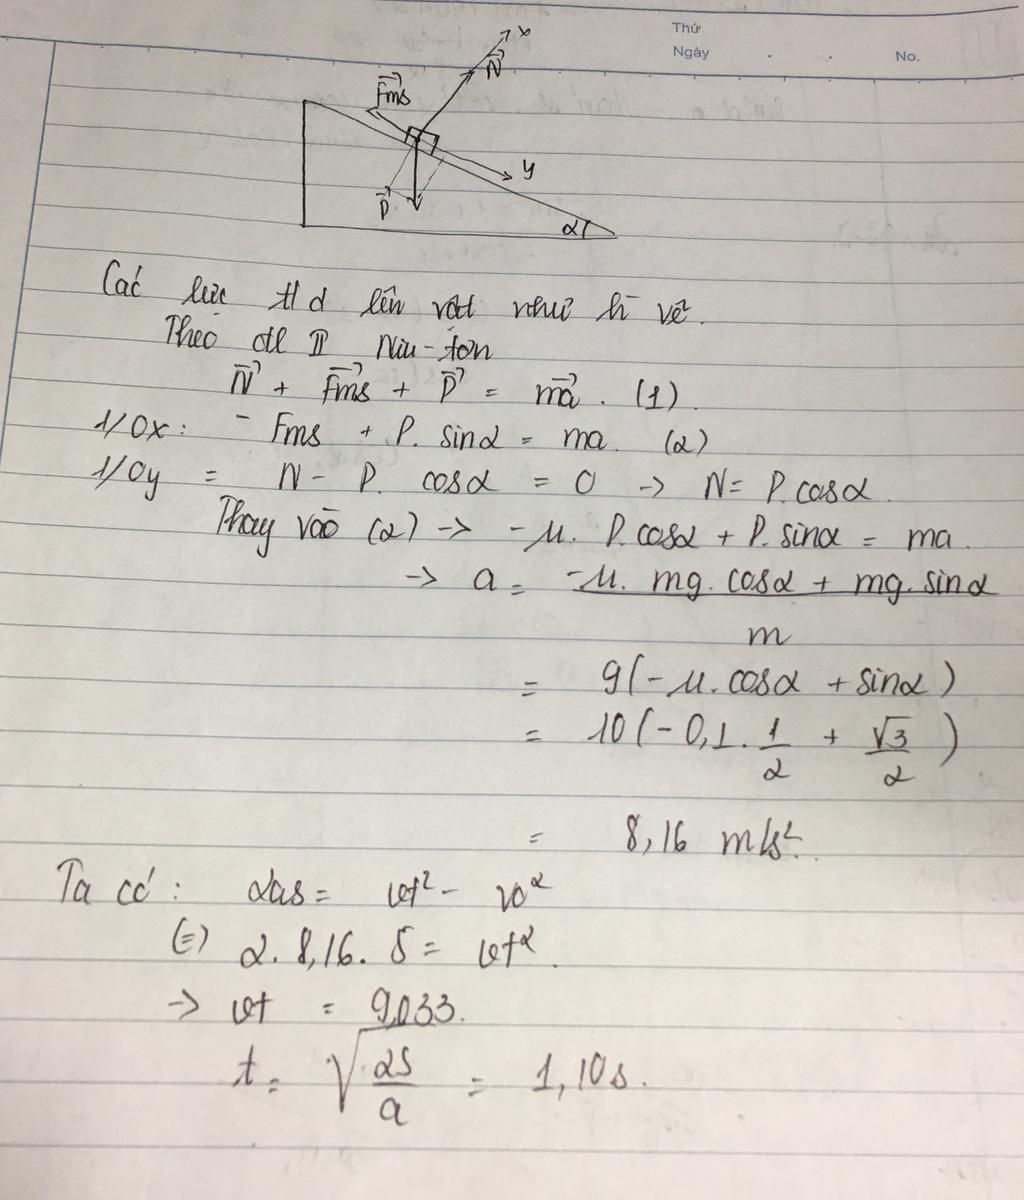 Thứ
Ngày . . No.
x
N
Fms
y
P
α
Các lực t/d lên vật như h vẽ.
Theo đl II Niu-tơn
N + Fms + P = ma. (1)
1/Ox: - Fms + P. sinα = ma. (2)
1/Oy = N - P. cosα = 0 -> N = P.cosα.
Thay vào (2) -> -μ. P.cosα + P.sinα = ma.
-> a = -μ. mg. cosα + mg. sinα
m
= g(-μ.cosα + sinα)
= 10(-0,1. 1/2 + √3/2)
= 8,16 m/s².
Ta có: 2as = vt² - vo²
(=) 2. 8,16. 5 = vt².
-> vt = 9,033.
t = √2s/a = 1,10s.